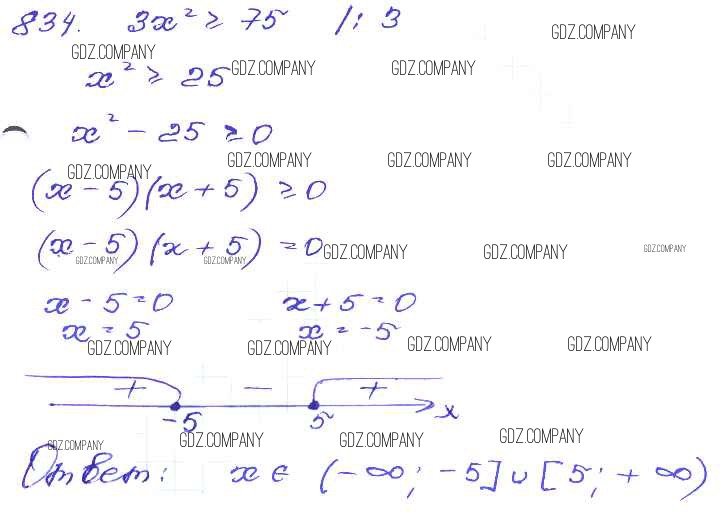 834. 3x² ≥ 75 /: 3
GDZ.COMPANY
GDZ.COMPANY
x² ≥ 25
GDZ.COMPANY GDZ.COMPANY
x² - 25 ≥ 0
GDZ.COMPANY GDZ.COMPANY GDZ.COMPANY GDZ.COMPANY
(x - 5)(x + 5) ≥ 0
(x - 5)(x + 5) = 0
GDZ.COMPANY GDZ.COMPANY GDZ.COMPANY GDZ.COMPANY GDZ.COMPANY
x - 5 = 0 x + 5 = 0
x = 5 x = -5
GDZ.COMPANY GDZ.COMPANY GDZ.COMPANY GDZ.COMPANY
+ - +
-5 5 x
GDZ.COMPANY GDZ.COMPANY GDZ.COMPANY GDZ.COMPANY
Ответ: x ∈ (-∞; -5] ∪ [5; +∞)